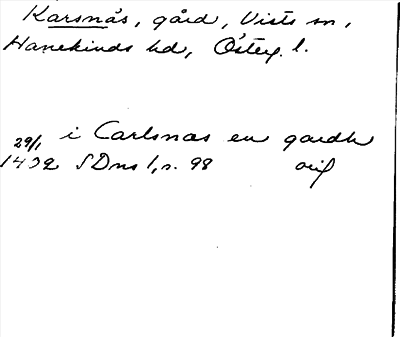 Karsnäs, gård, Vists sn,
Hanekinds hd, Österg. l.
i Carlsnæs en gardh
29/1
1402 SDns 1, s. 98 orig